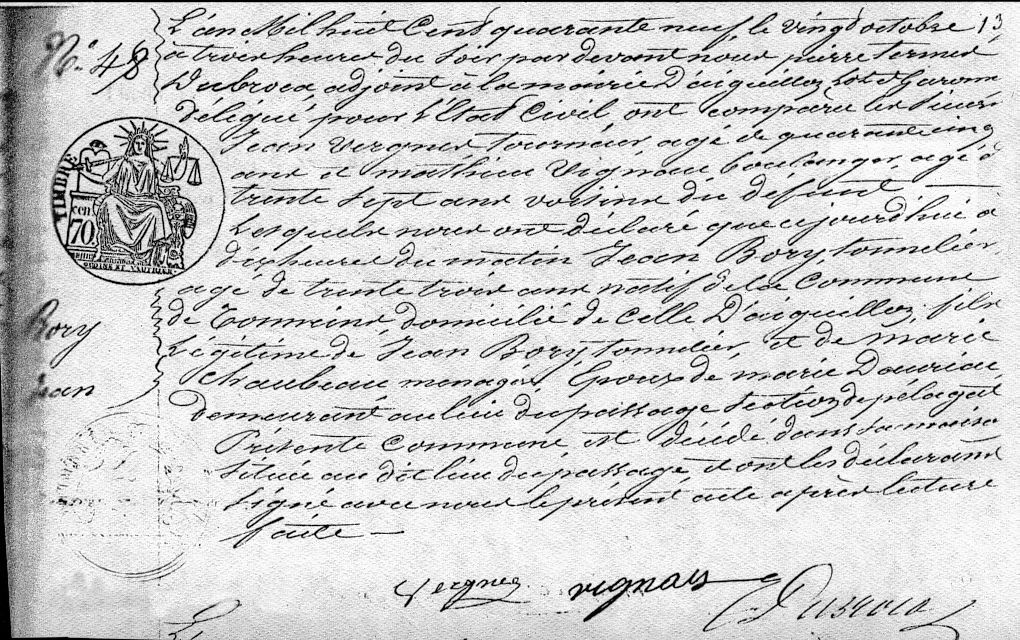 N.° 48
TIMBRE
cen
70.
Bory
Jean
L'an Mil huit Cent quarante neuf, le vingt octobre 13
à trois heures du soir par devant nous pierre
Dubroca, adjoint à la mairie D'aiguillon Lot et Garonne
délégué pour l'Etat Civil, ont comparu les Sieurs
Jean Vergnes tourneur, agé de quarante cinq
ans et mathieu Vignau boulanger, agé de
trente sept ans voisins du défunt —
Lesquels nous ont déclaré que aujourd'hui à
dix heures du matin Jean Bory, tonnelier,
agé de trente trois ans natif de la Commune
de Tonneins domicilié de Celle D'aiguillon, fils
Légitime de Jean Bory tonnelier, et de marie
Chaubeau menagère, Epoux de marie Dauriac,
demeurant au lieu du passage Section de pélagat
Présente Commune est décédé dans sa maison
située au dit lieu du passage, et ont les déclarants
signé avec nous le présent acte après lecture
faite —
Vergnes vignau Dubroca